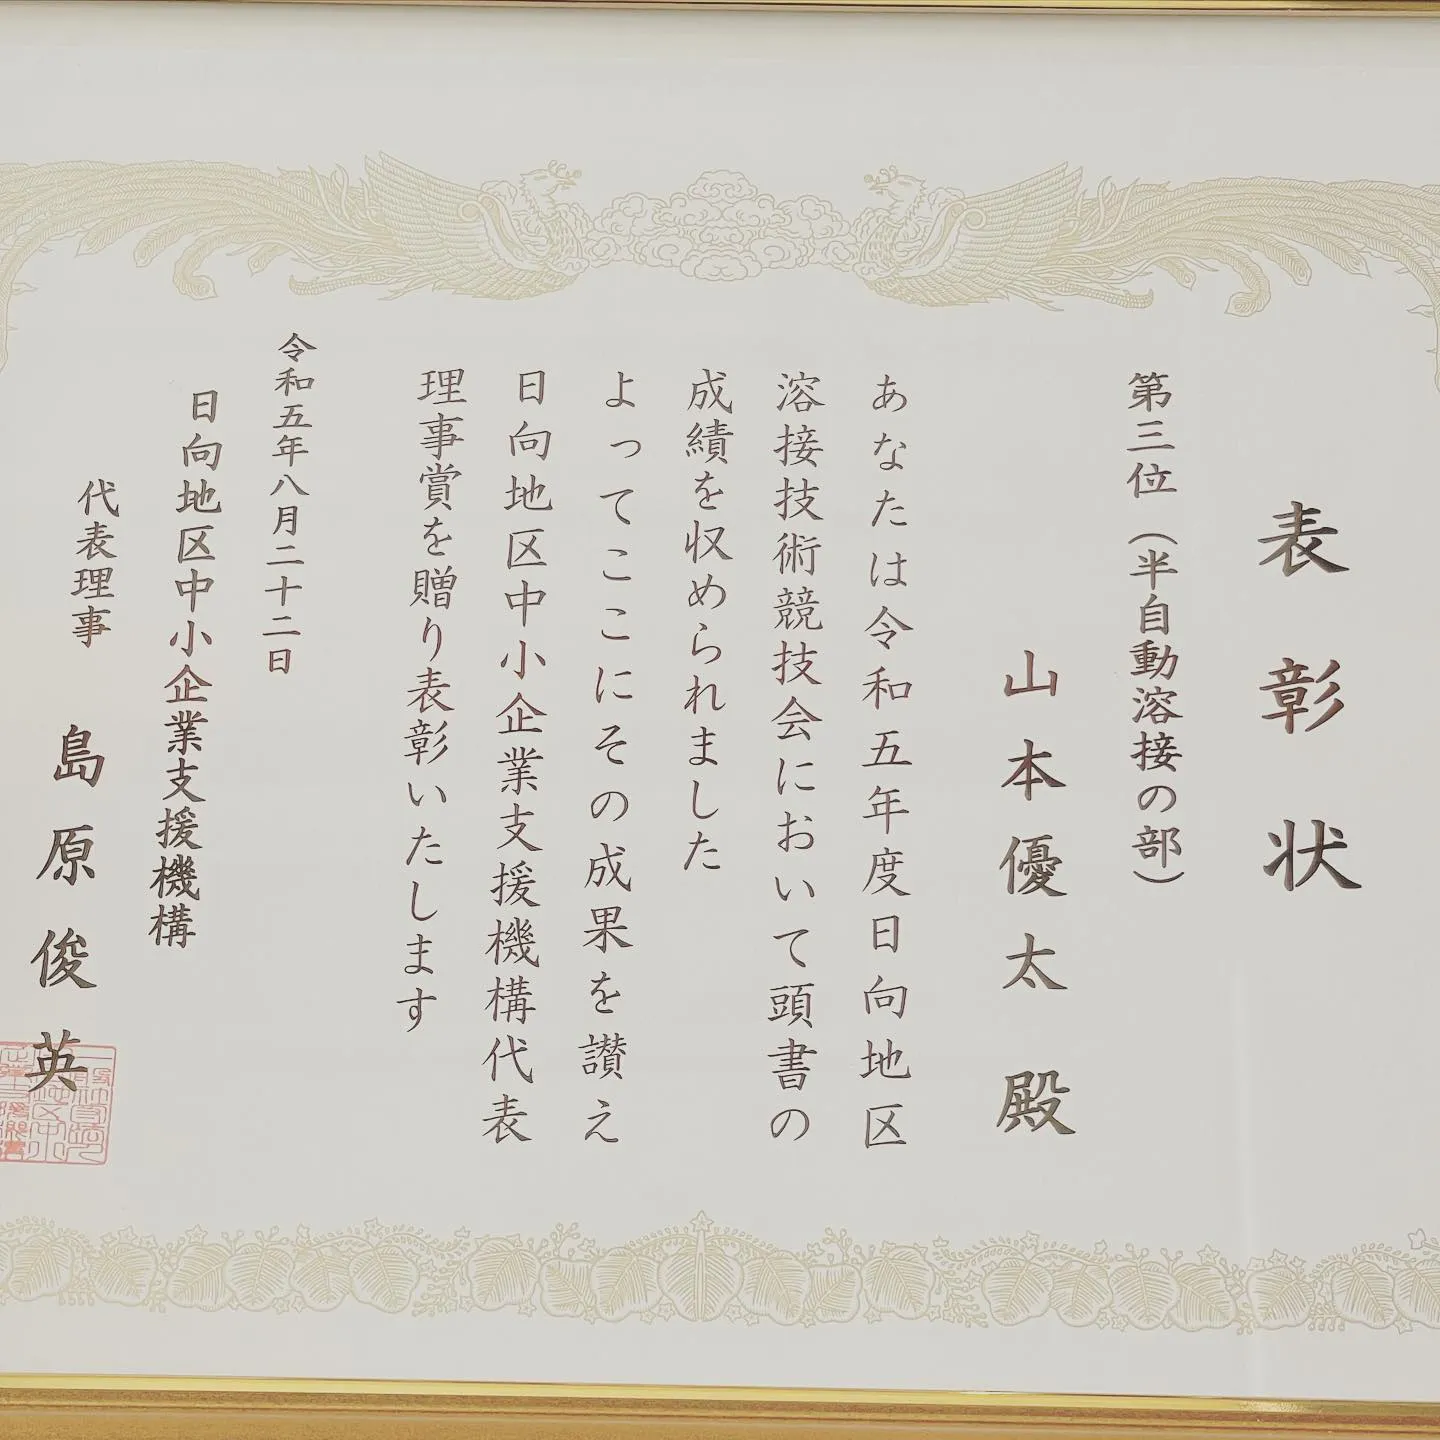 表彰状
第三位（半自動溶接の部）
山本優太 殿
あなたは令和五年度日向地区
溶接技術競技会において頭書の
成績を収められました
よってここにその成果を讃え
日向地区中小企業支援機構代表
理事賞を贈り表彰いたします
令和五年八月二十二日
日向地区中小企業支援機構
代表理事 島原俊英